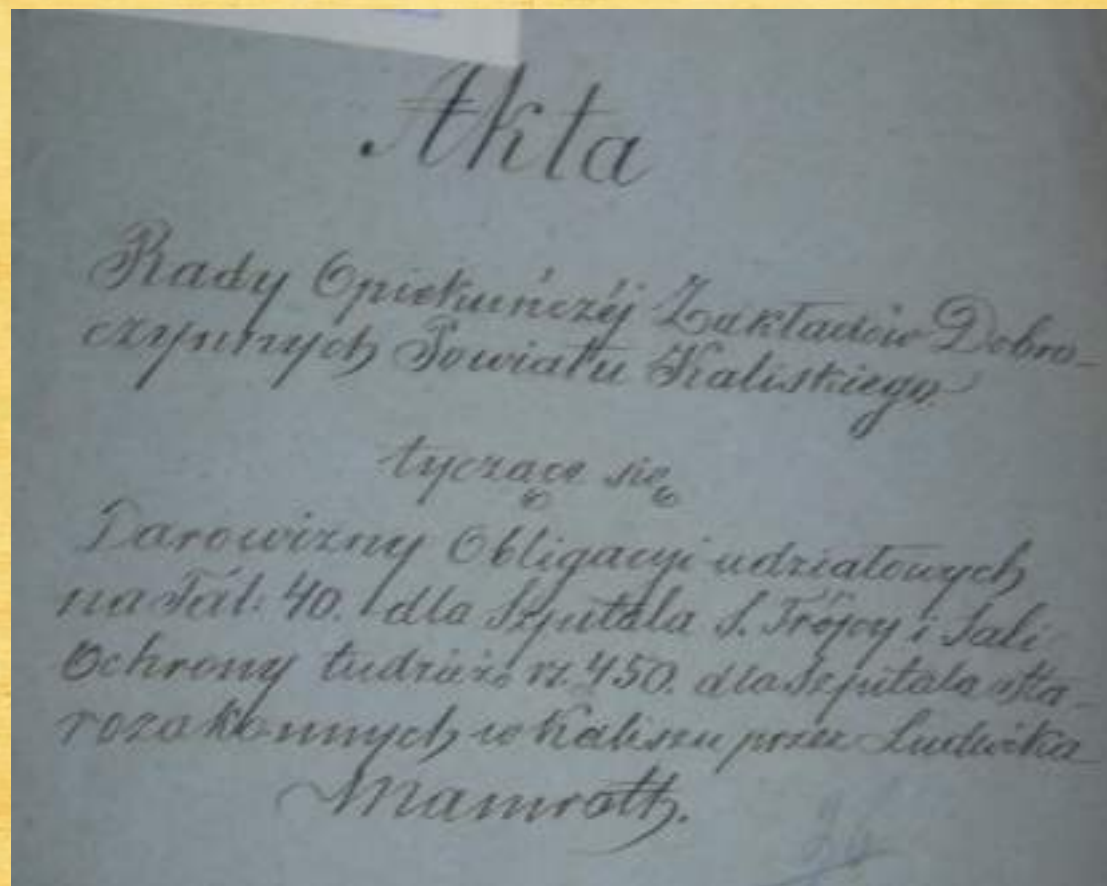 Akta
Rady Opiekuńczéj Zakładów Dobro-
czynnych Powiatu Kaliskiego.
tyczące się
Darowizny Obligacyi udziałowych
na Tal. 40. dla Szpitala S. Trójcy i Sali
Ochrony tudzież rs. 450. dla Szpitala sta-
rozakonnych w Kaliszu przez Ludwika
Mamroth.